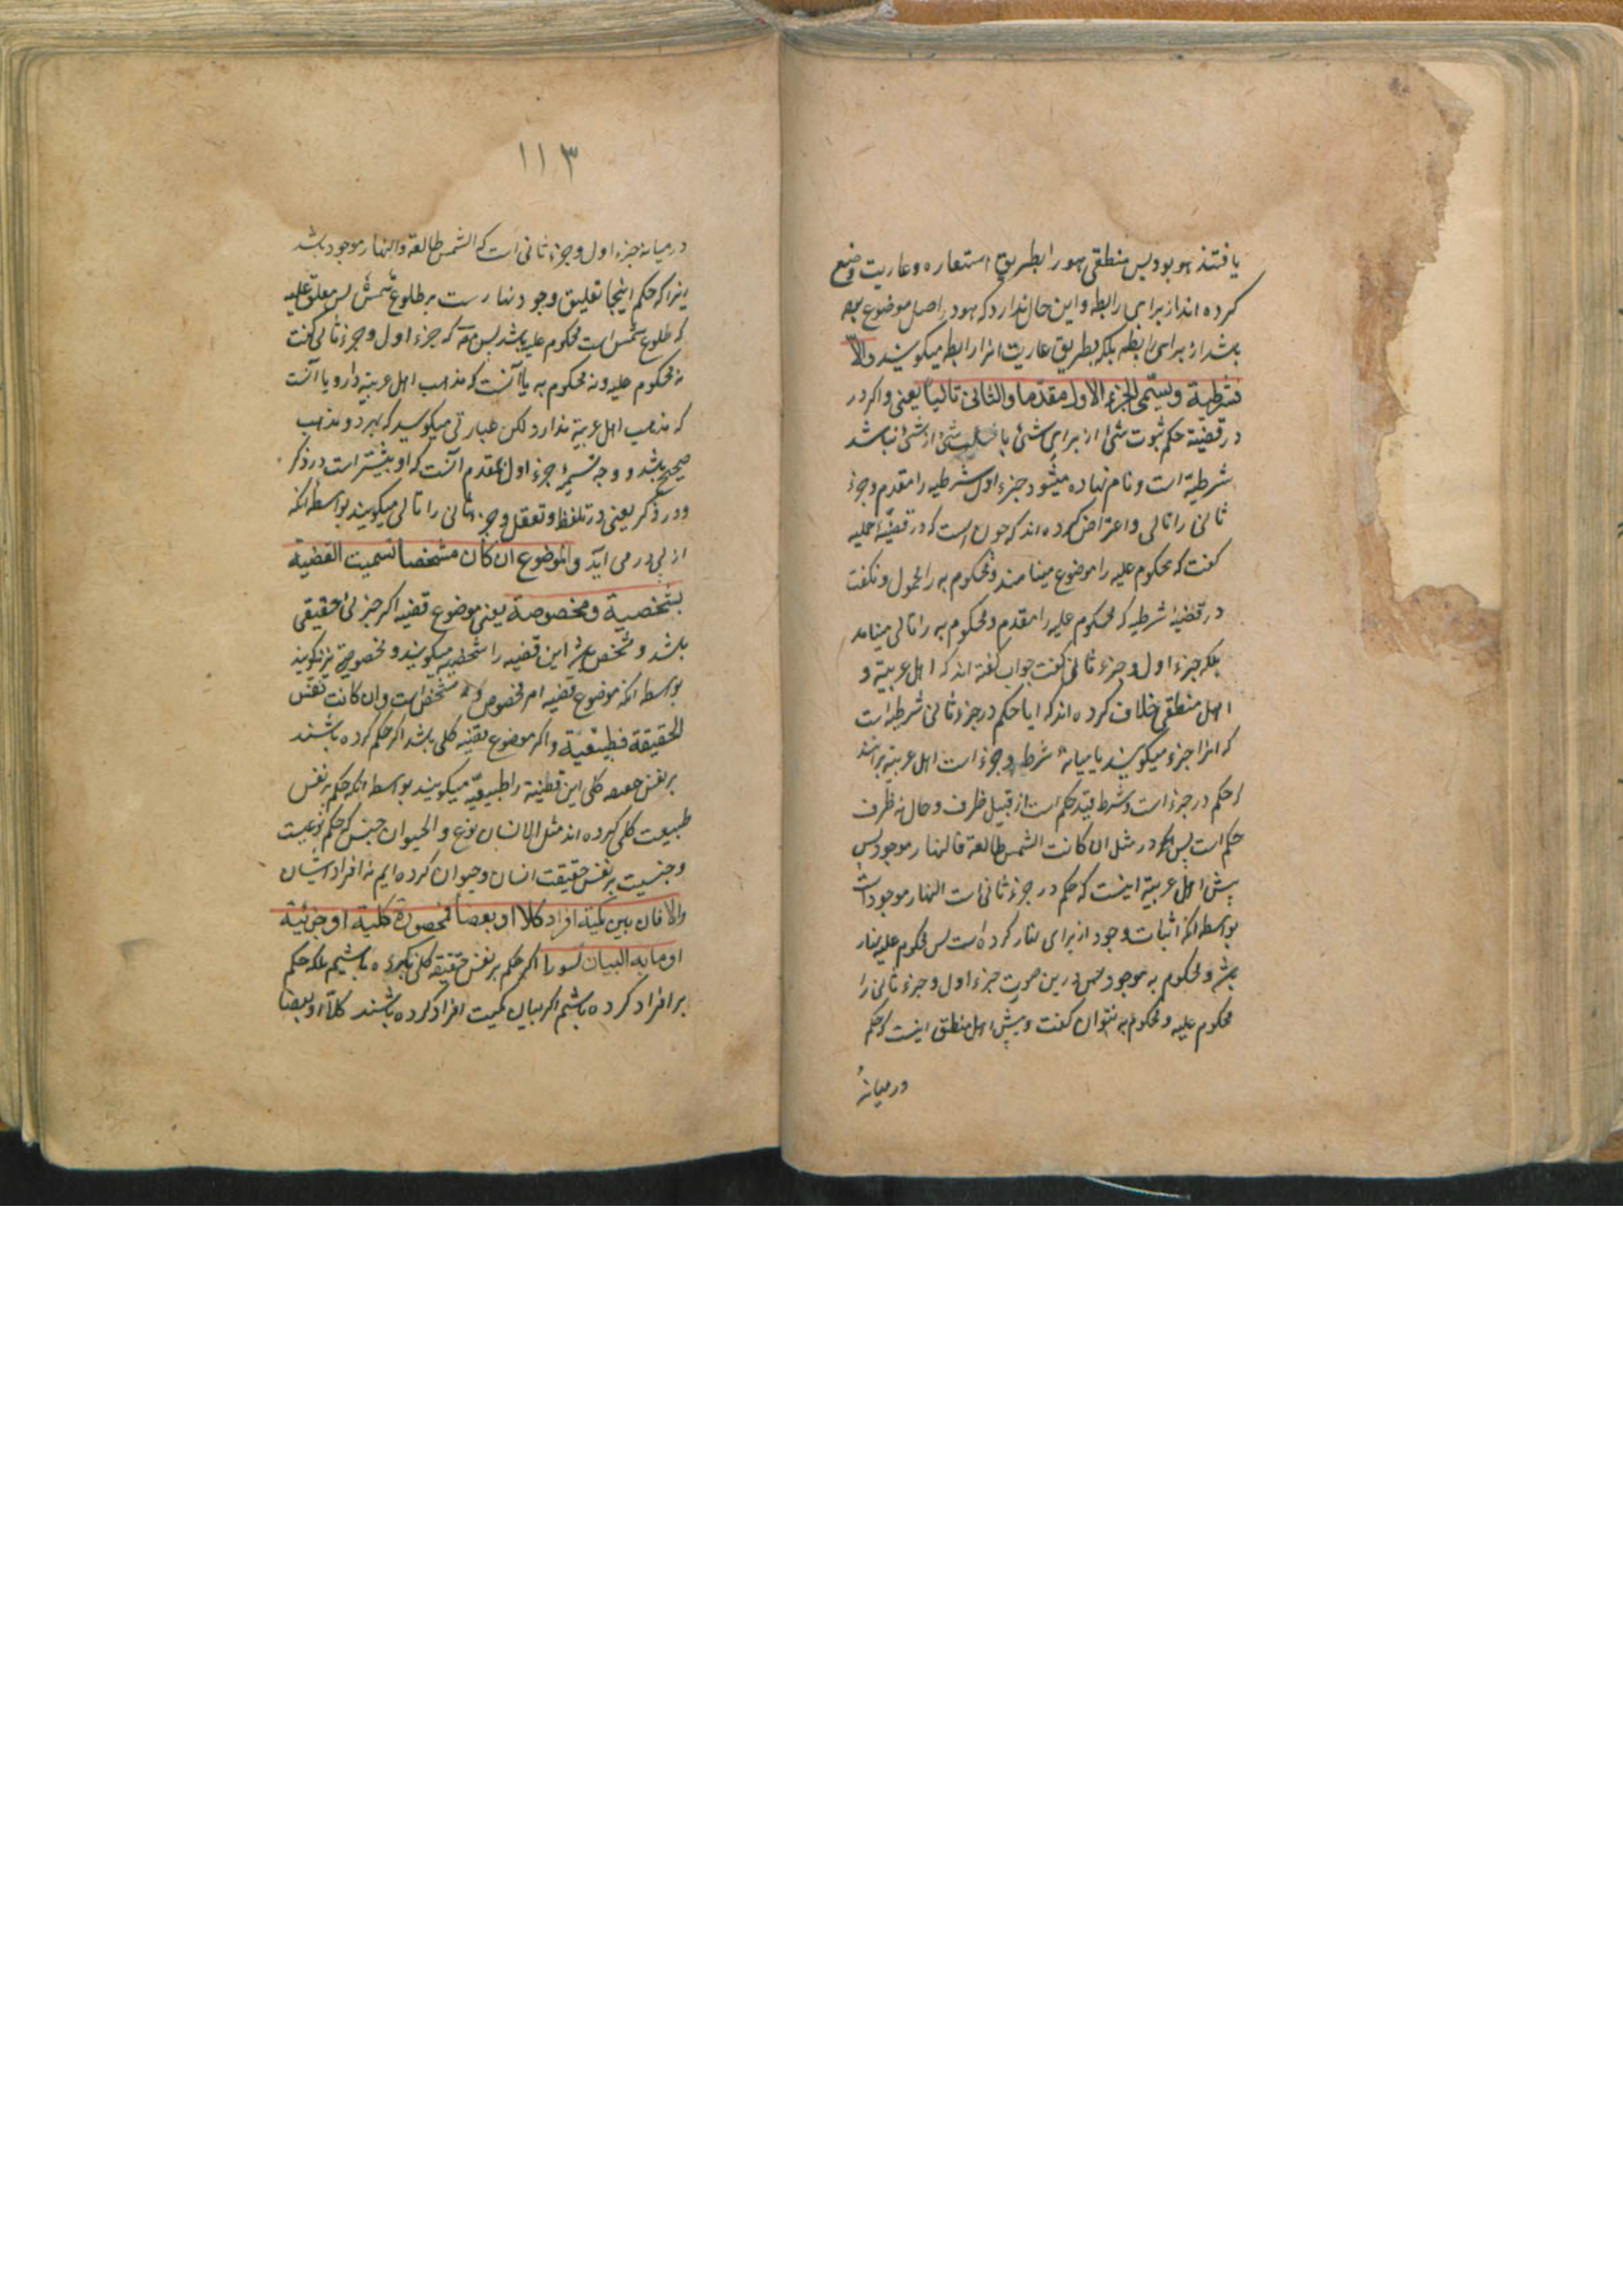 یافتند هو بود پس منطقی هو را بطریق استعاره و عاریت وضع
کرده اند از برای رابطه و این حال ندارد که هو در اصل موضوع بوده
باشد از برای رابطه بلکه بطریق عاریت انرا رابطه میکویند والا
فشرطیة ویسمی الجزء الاول مقدما والثانی تالیا یعنی و اکر در
در قضیة حکم ثبوت شئ از برای شئ یا سلب شئ از شئ نباشد
شرطیة است و نام نهاده میشود جزء اول شرطیه را مقدم و جزء
ثانی را تالی و اعتراض کرده اند که چون است که در قضیهٔ حملیه
کفت که محکوم علیه را موضوع مینامند و محکوم به را محمول و نکفت
در قضیهٔ شرطیه که محکوم علیه را مقدم و محکوم به را تالی مینامند
بلکه جزء اول و جزء ثانی کفت جواب کفته اند که اهل عربیة و
اهل منطقی خلاف کرده اند که ایا حکم در جزء ثانی شرطیه است
که انرا جزء میکویند یا میانهٔ شرط و جزء است اهل عربیة برانند
که حکم در جزء است و شرط قید حکم است از قبیل ظرف و حال نه ظرف
حکم است پس در مثل ان کانت الشمس طالعة فالنهار موجود پس
پیش اهل عربیة اینست که حکم در جزء ثانی است النهار موجود است
بواسطه انکه اثبات وجود از برای نهار کرده است پس محکوم علیه نهار
باشد و محکوم به موجود پس درین صورت جزء اول و جزء ثانی را
محکوم علیه و محکوم به نتوان کفت و پیش اهل منطق اینست که حکم
درمیانهٔ
۱۱۳
درمیانه جزء اول و جزء ثانی است که الشمس طالعة والنهار موجود باشد
زیراکه حکم اینجا تعلیق وجود نهار است بر طلوع شمش پس معلق علیه
که طلوع شمس است محکوم علیه باشد پس که جزء اول و جزء ثانی کفت
نه محکوم علیه و نه محکوم به یا آنست که مذهب اهل عربیة دارد یا آنست
که مذهب اهل عربیة ندارد لکن عبارتی میکوید که بهر دو مذهب
صحیح باشد و وجه تسمیهٔ جزء اول بمقدم آنست که او پیشتر است در ذکر
و در ذکر یعنی در تلفظ و تعقل و جزء ثانی را تالی میکویند بواسطه انکه
از پی در می آید والموضوع ان کان مشخصا سمیت القضیة
شخصیة ومخصوصة یعنی موضوع قضیه اکر جزئی حقیقی
باشد و شخص باشد این قضیه را شخصیه میکویند و مخصوصة نیز کویند
بواسطه انکه موضوع قضیه امر مخصوص و مشخص است وان کانت نفس
الحقیقة فطبیعیة و اکر موضوع قضیه کلی باشد اکر حکم کرده باشند
بر نفس کلی این قضیة را طبیعیه میکویند بواسطه انکه حکم بر نفس
طبیعت کلی کرده اند مثل الانسان نوع والحیوان جنس که حکم نوعیت
و جنسیت بر نفس حقیقت انسان و حیوان کرده ایم نه افراد ایشان
والا فان بین کمیة افراد کلا او بعضا فمحصورة کلیة او جزئیة
او ما به البیان سورا اکر حکم بر نفس حقیقه کلی نکرده باشیم بلکه حکم
بر افراد کرده باشیم اکر بیان کمیت افراد کرده باشند کلا او بعضا